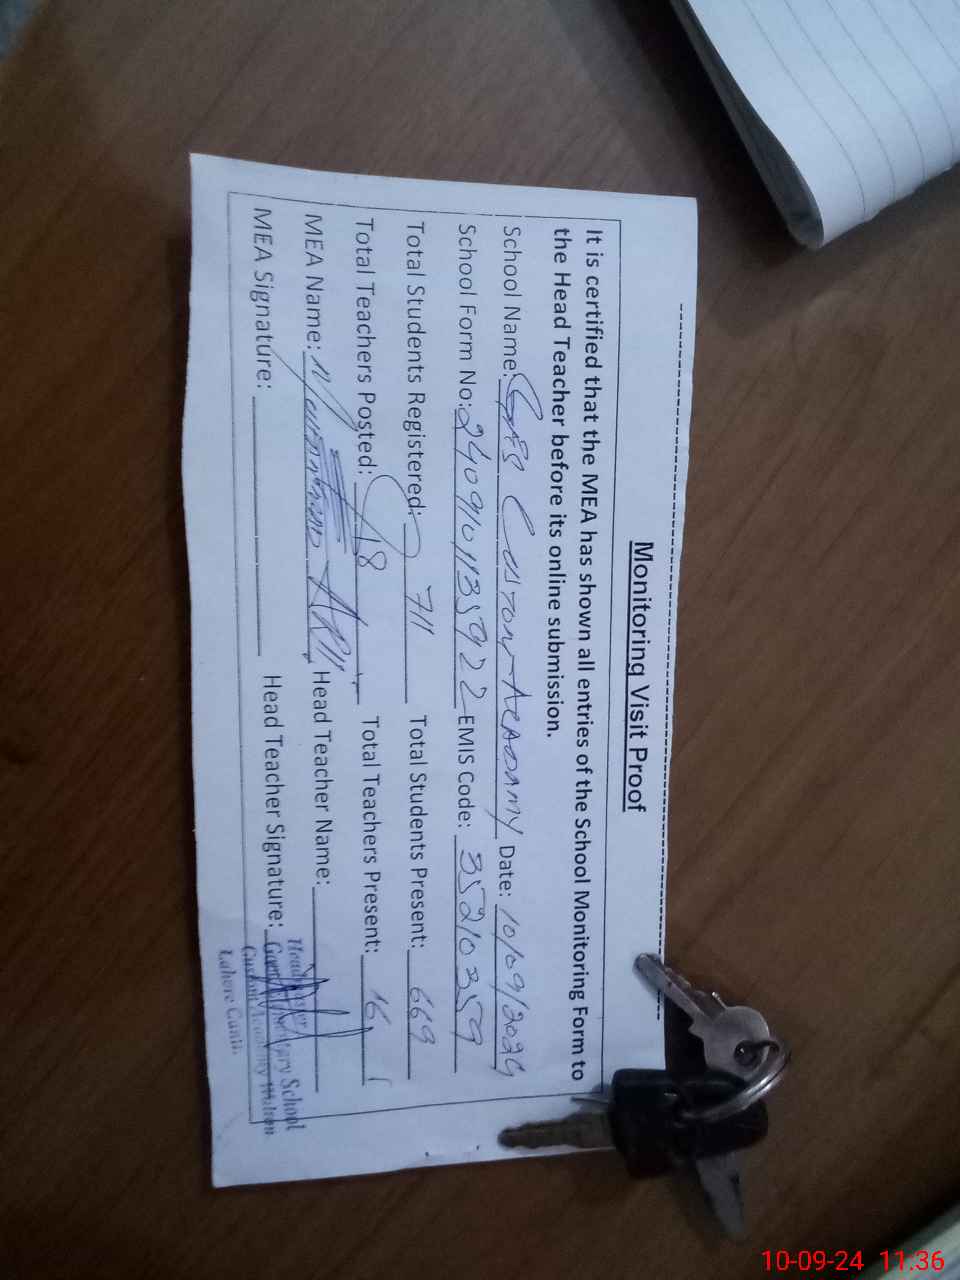 Monitoring Visit Proof
It is certified that the MEA has shown all entries of the School Monitoring Form to
the Head Teacher before its online submission.
School Name: GES Custom Academy Date: 10/09/2024
School Form No: 24091011135922 EMIS Code: 35210359
Total Students Registered: 711 Total Students Present: 669
Total Teachers Posted: 18 Total Teachers Present: 16
MEA Name: Head Teacher Name:
MEA Signature: Head Teacher Signature:
School
Custom Academy Walton
Lahore Cantt.
10-09-24 11:36